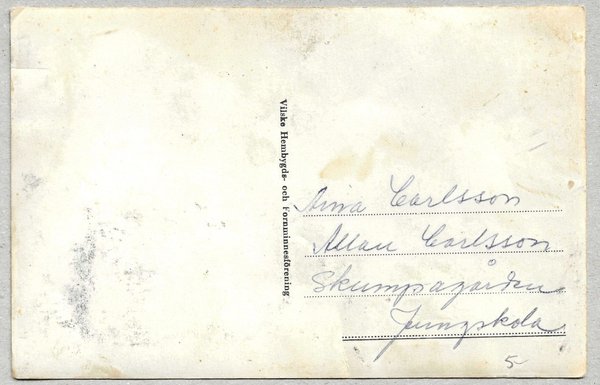 Vilske Hembygds- och Fornminnesförening
Aina Carlsson
Allan Carlsson
Skumpagården
Jungskola
5